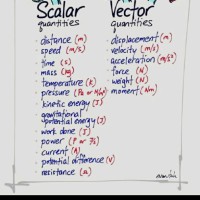 Scalar quantities
Vector quantities
· distance (m)
· speed (m/s)
· time (s)
· mass (kg)
· temperature (K)
· pressure (Pa or N/m²)
· kinetic energy (J)
· gravitational potential energy (J)
· work done (J)
· power (W or J/s)
· current (A)
· potential difference (V)
· resistance (Ω)
· displacement (m)
· velocity (m/s)
· acceleration (m/s²)
· force (N)
· weight (N)
· moment (Nm)